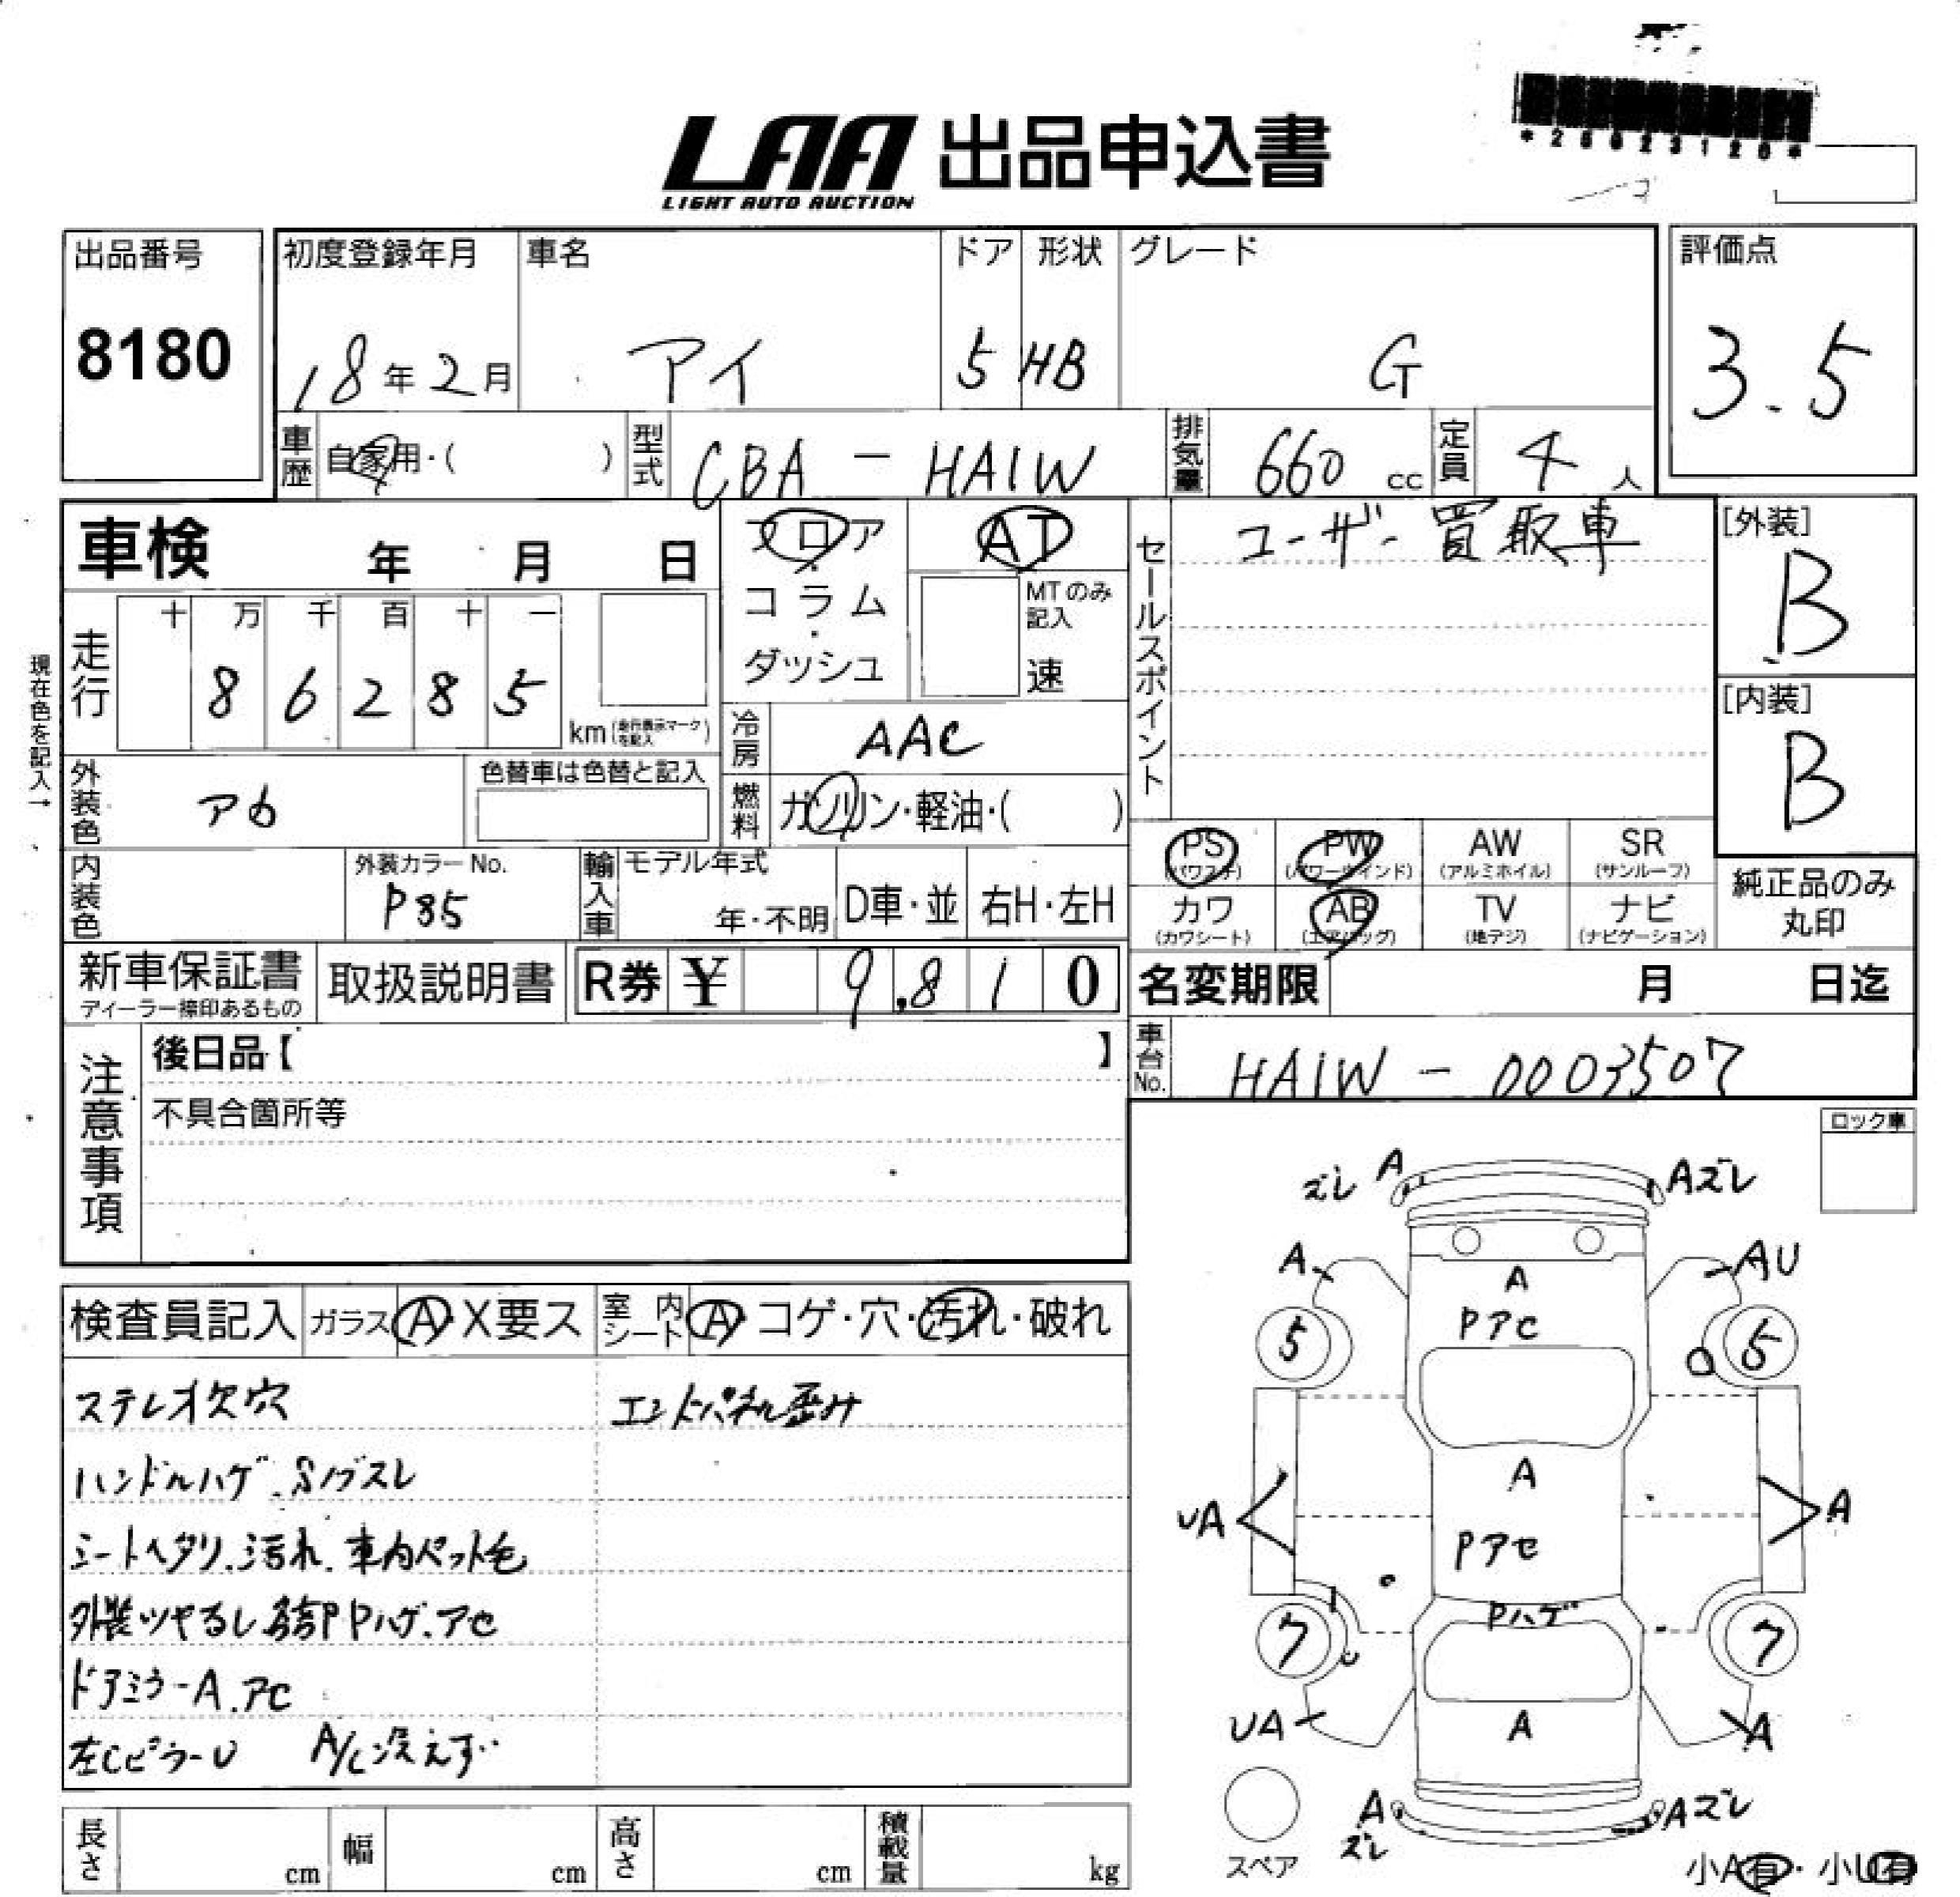 LAA 出品申込書
LIGHT AUTO AUCTION
*25023120*
出品番号
8180
初度登録年月
18年2月
車名
アイ
ドア
5
形状
HB
グレード
G
評価点
3.5
車歴
自家用・( )
型式
CBA-HA1W
排気量
660 cc
定員
4人
車検 年 月 日
フロア
・
コラム
・
ダッシュ
AT
MTのみ
記入
速
セールスポイント
ユーザー買取車
[外装]
B
[内装]
B
現在色を記入→
走行
十 万 千 百 十 一
8 6 2 8 5
km(走行表示マークを記入)
冷房
AAC
外装色
アカ
色替車は色替と記入
燃料
ガソリン・軽油・( )
内装色
外装カラーNo.
P85
輸入車
モデル年式
年・不明
D車・並
右H・左H
PS
(パワステ)
PW
(パワーウインド)
AW
(アルミホイル)
SR
(サンルーフ)
カワ
(カワシート)
AB
(エアバッグ)
TV
(地デジ)
ナビ
(ナビゲーション)
純正品のみ
丸印
新車保証書
ディーラー捺印あるもの
取扱説明書
R券 ¥ 9,810
名変期限 月 日迄
注意事項
後日品【 】
不具合箇所等
車台No.
HA1W-0003507
ロック車
検査員記入
ガラス
A X要ス
室内シート
A・コゲ・穴・汚れ・破れ
ステレオ欠穴
エンドパネル歪み
ハンドルハゲ.Sノブスレ
シートヘタリ.汚れ.車内ペット毛
外装ツヤ
Pハゲ.アセ
ドアミラーA.アC
左CピラーU A/C冷えず
ズレ A
Aズレ
A
AU
A
PアC
5
5
A
UA
A
Pアセ
Pハゲ
7
7
UA
A
A
A
ズレ
Aズレ
スペア
小A有・小U有
長さ cm
幅 cm
高さ cm
積載量 kg